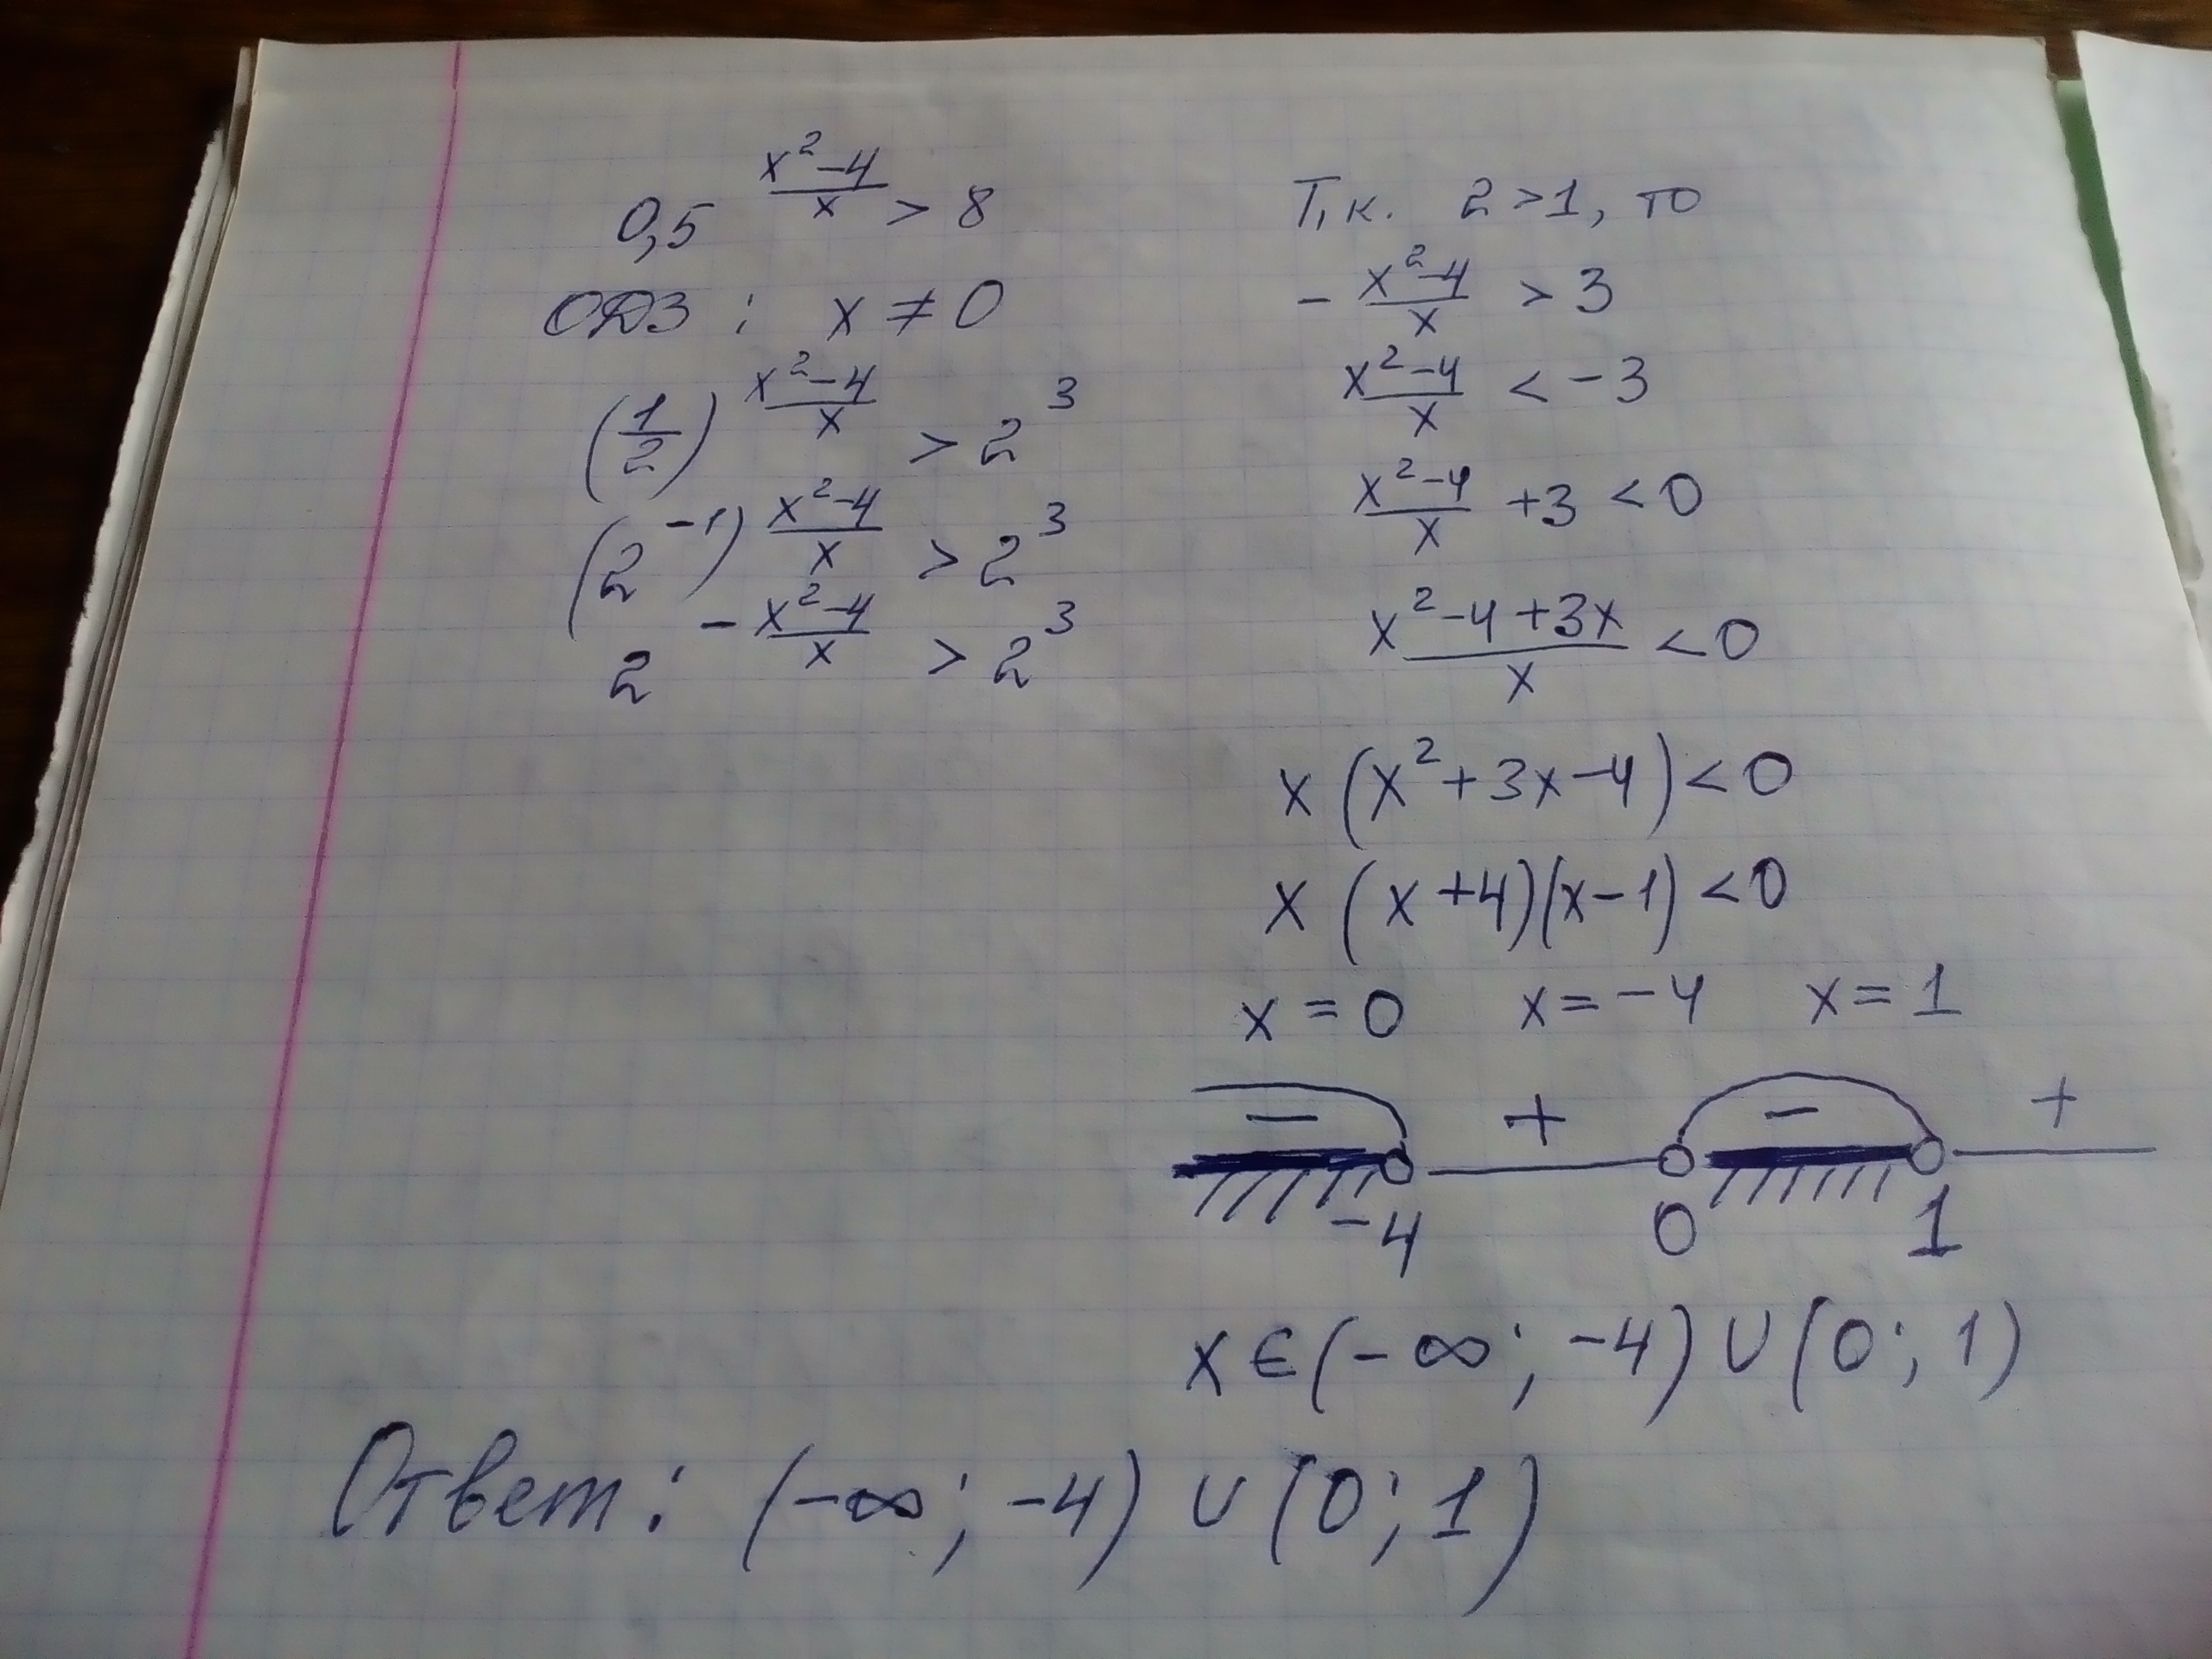 0,5^((x²-4)/x) > 8
ОДЗ : x ≠ 0
(1/2)^((x²-4)/x) > 2³
(2⁻¹)^((x²-4)/x) > 2³
2^(-(x²-4)/x) > 2³
Т,к. 2 > 1, то
- (x²-4)/x > 3
(x²-4)/x < -3
(x²-4)/x +3 < 0
(x²-4+3x)/x < 0
x(x²+3x-4) < 0
x(x+4)(x-1) < 0
x = 0 x = -4 x = 1
- + - +
-4 0 1
x ∈ (-∞; -4) ∪ (0; 1)
Ответ: (-∞; -4) ∪ (0; 1)